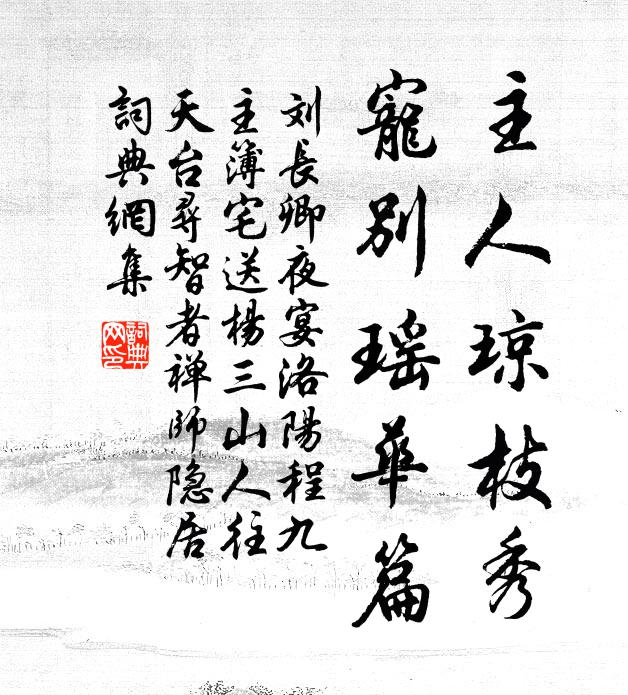 主人琼枝秀
寵别瑶華篇
刘長卿夜宴洛陽程九
主簿宅送楊三山人往
天台尋智者禅師隐居
詞典網集
詞典
网印